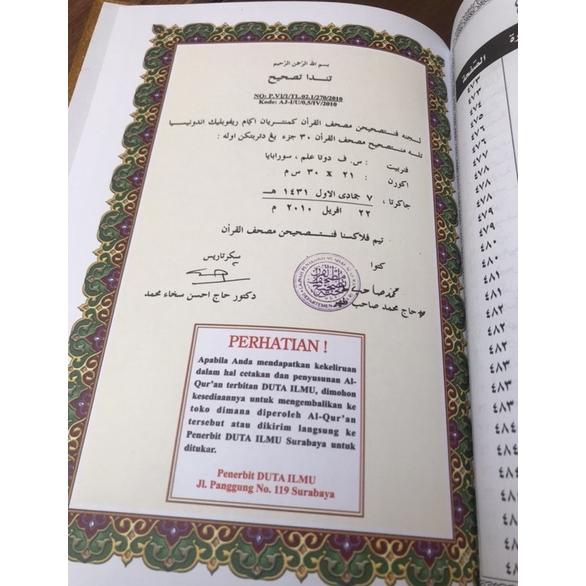 بسم الله الرحمن الرحيم
تندا تصحيح
NO: P.VI/1/TL.02.1/270/2010
Kode: AJ-I/U/0,5/IV/2010
لجنه فنتصحيحن مصحف القرأن كمنتريان اكام ريفوبليك اندونيسيا
تله منتصحيح مصحف القرأن ٣٠ جزء يڠ دتربتكن اوله :
فنربيت : س . ف دوتا علم ، سورابايا
اكورن : ٢١ x ٣٠ س م
جاكرتا ، ٧ جمادى الاول ١٤٣١ هـ
٢٢ افريل ٢٠١٠ م
تيم فلاكسنا فنتصحيحن مصحف القرأن
كتوا
سكرتاريس
حاج محمد صاحب
دكتور حاج احسن سخاء محمد
PERHATIAN !
Apabila Anda mendapatkan kekeliruan
dalam hal cetakan dan penyusunan Al-
Qur'an terbitan DUTA ILMU, dimohon
kesediaannya untuk mengembalikan ke
toko dimana diperoleh Al-Qur'an
tersebut atau dikirim langsung ke
Penerbit DUTA ILMU Surabaya untuk
ditukar.
Penerbit DUTA ILMU
Jl. Panggung No. 119 Surabaya
الصفحة
٤٧٣
٤٧٤
٤٧٥
٤٧٦
٤٧٧
٤٧٨
٤٧٨
٤٧٩
٤٨٠
٤٨٠
٤٨١
٤٨١
٤٨٢
٤٨٢
٤٨٣
٤٨٣
٤٨٣